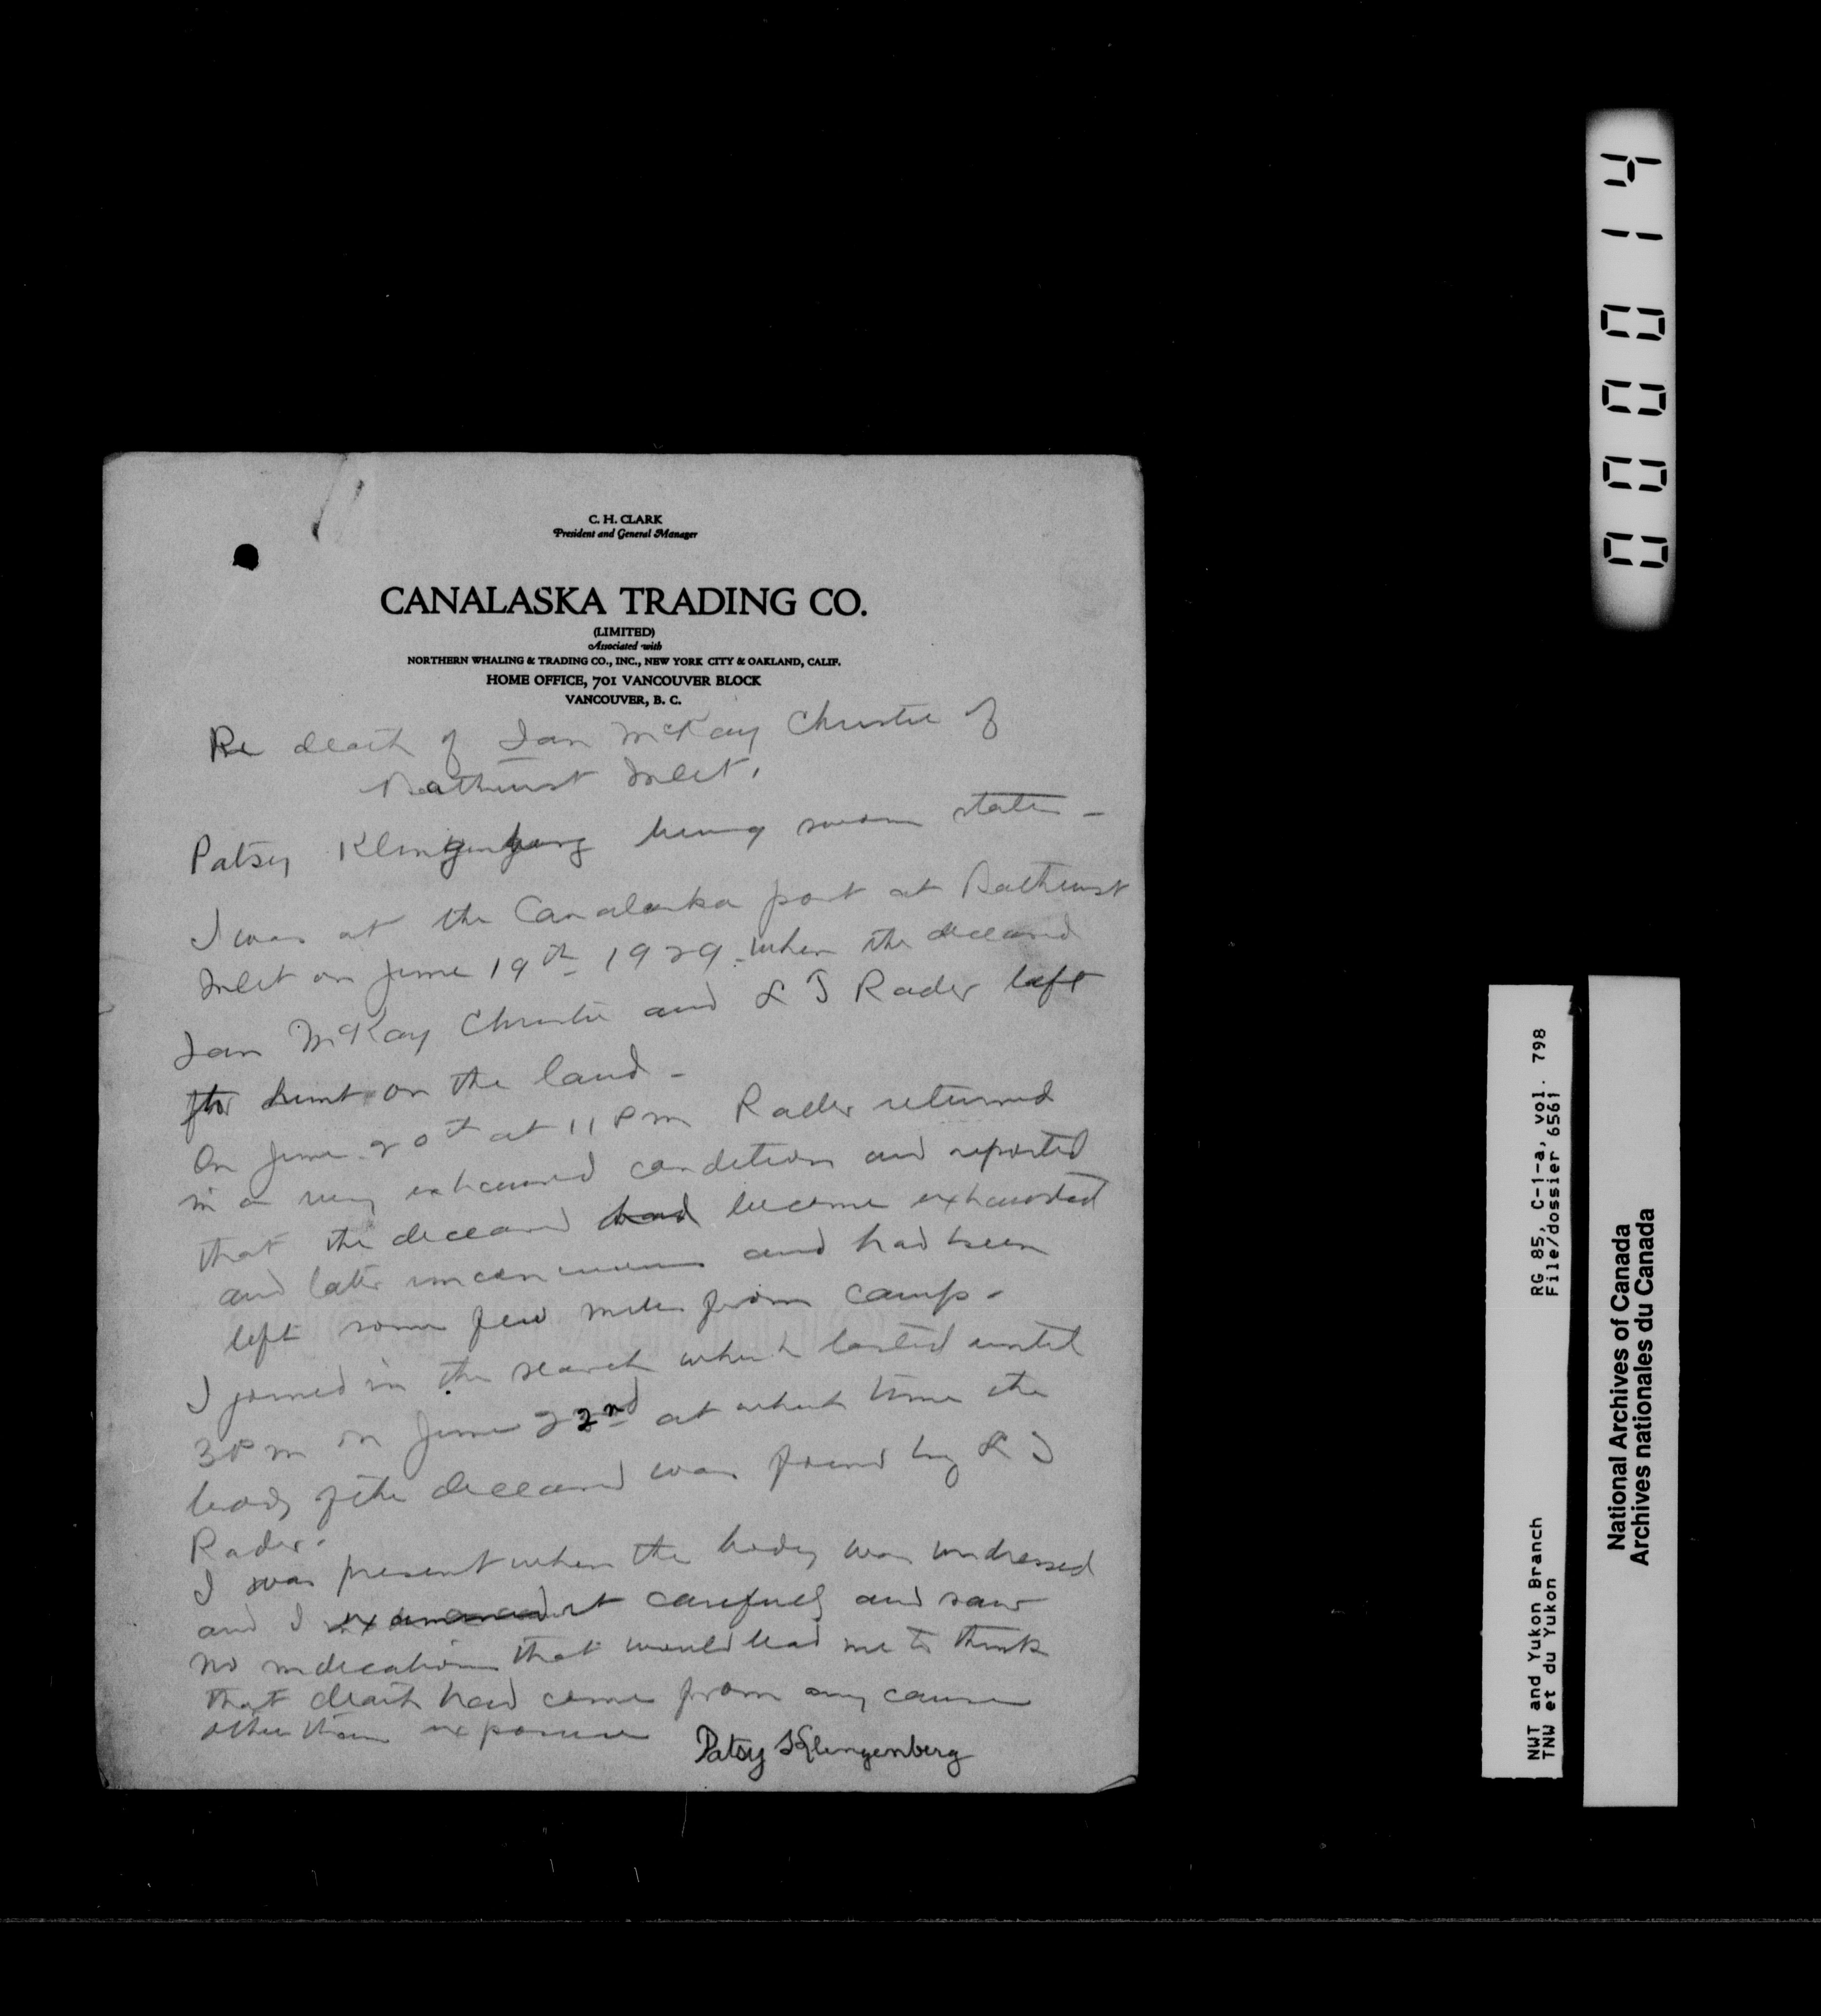 C. H. CLARK
President and General Manager
CANALASKA TRADING CO.
(LIMITED)
Associated with
NORTHERN WHALING & TRADING CO., INC., NEW YORK CITY & OAKLAND, CALIF.
HOME OFFICE, 701 VANCOUVER BLOCK
VANCOUVER, B. C.
Re death of Ian McKay Christie of
Bathurst Inlet.
Patsy Klengenberg being sworn states -
I was at the Canalaska post at Bathurst
Inlet on June 19th 1929 when the deceased
Ian McKay Christie and R J Rader left
for hunt on the land -
On June 20th at 11 PM Rader returned
in a very exhausted condition and reported
that the deceased had become exhausted
and later unconscious and had been
left some few miles from camp -
I joined in the search which lasted until
3 PM on June 22nd at which time the
body of the deceased was found by R J
Rader.
I was present when the body was undressed
and I examined it carefully and saw
no indication that would lead me to think
that death had come from any cause
other than exposure
Patsy Klengenberg
000014
RG 85, C-1-a, vol. 798
File/dossier 6561
NWT and Yukon Branch
TNW et du Yukon
National Archives of Canada
Archives nationales du Canada